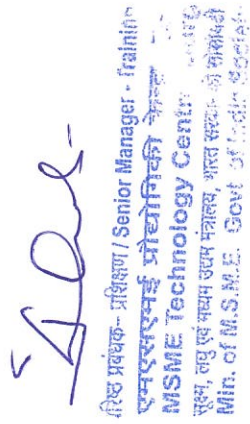 वरिष्ठ प्रबंधक - प्रशिक्षण / Senior Manager - Training
एमएसएमई प्रौद्योगिकी केन्द्र
MSME Technology Centre
सूक्ष्म, लघु एवं मध्यम उद्यम मंत्रालय, भारत सरकार की सोसायटी
Min. of M.S.M.E. Govt of India Society